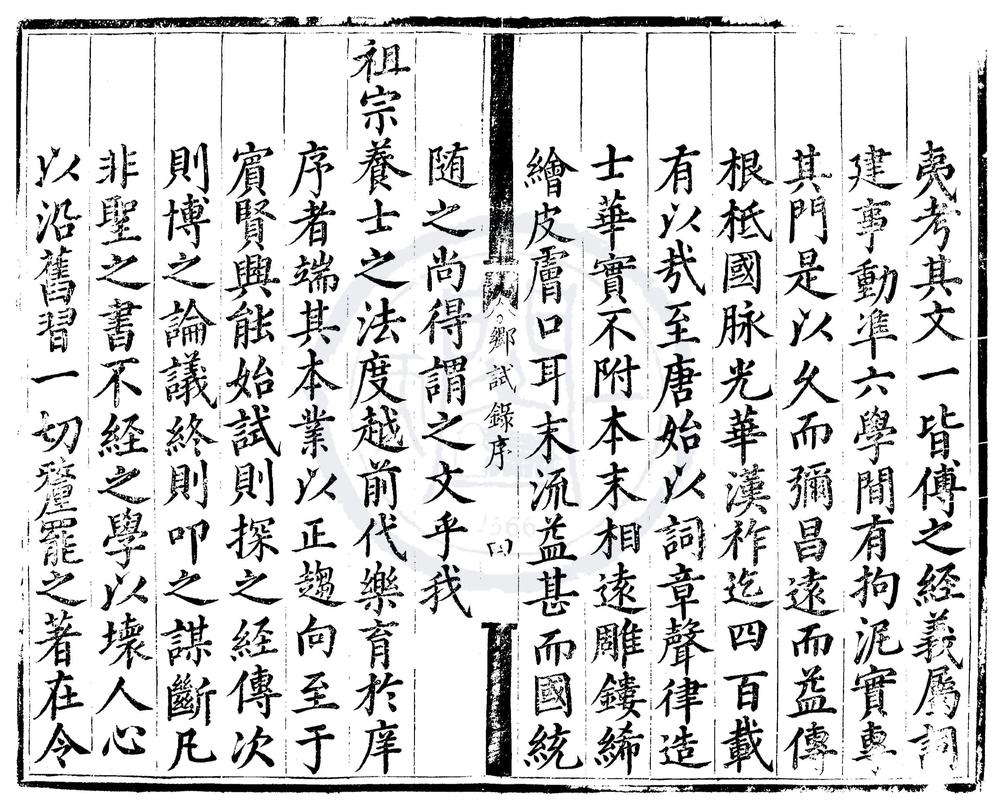 夷考其文一皆傅之經義屬詞
建事動準六學間有拘泥實專
其門是以久而彌昌遠而益傳
根柢國脉光華漢祚迄四百載
有以㦲至唐始以詞章聲律造
士華實不附本末相遠雕鏤絺
繪皮膚口耳末流益甚而國統
鄉試錄序
四
随之尚得謂之文乎我
祖宗養士之法度越前代樂育於庠
序者端其本業以正趨向至于
賓賢興能始試則探之經傳次
則博之論議終則叩之謀斷凡
非聖之書不經之學以壞人心
以沿舊習一切釐罷之著在令